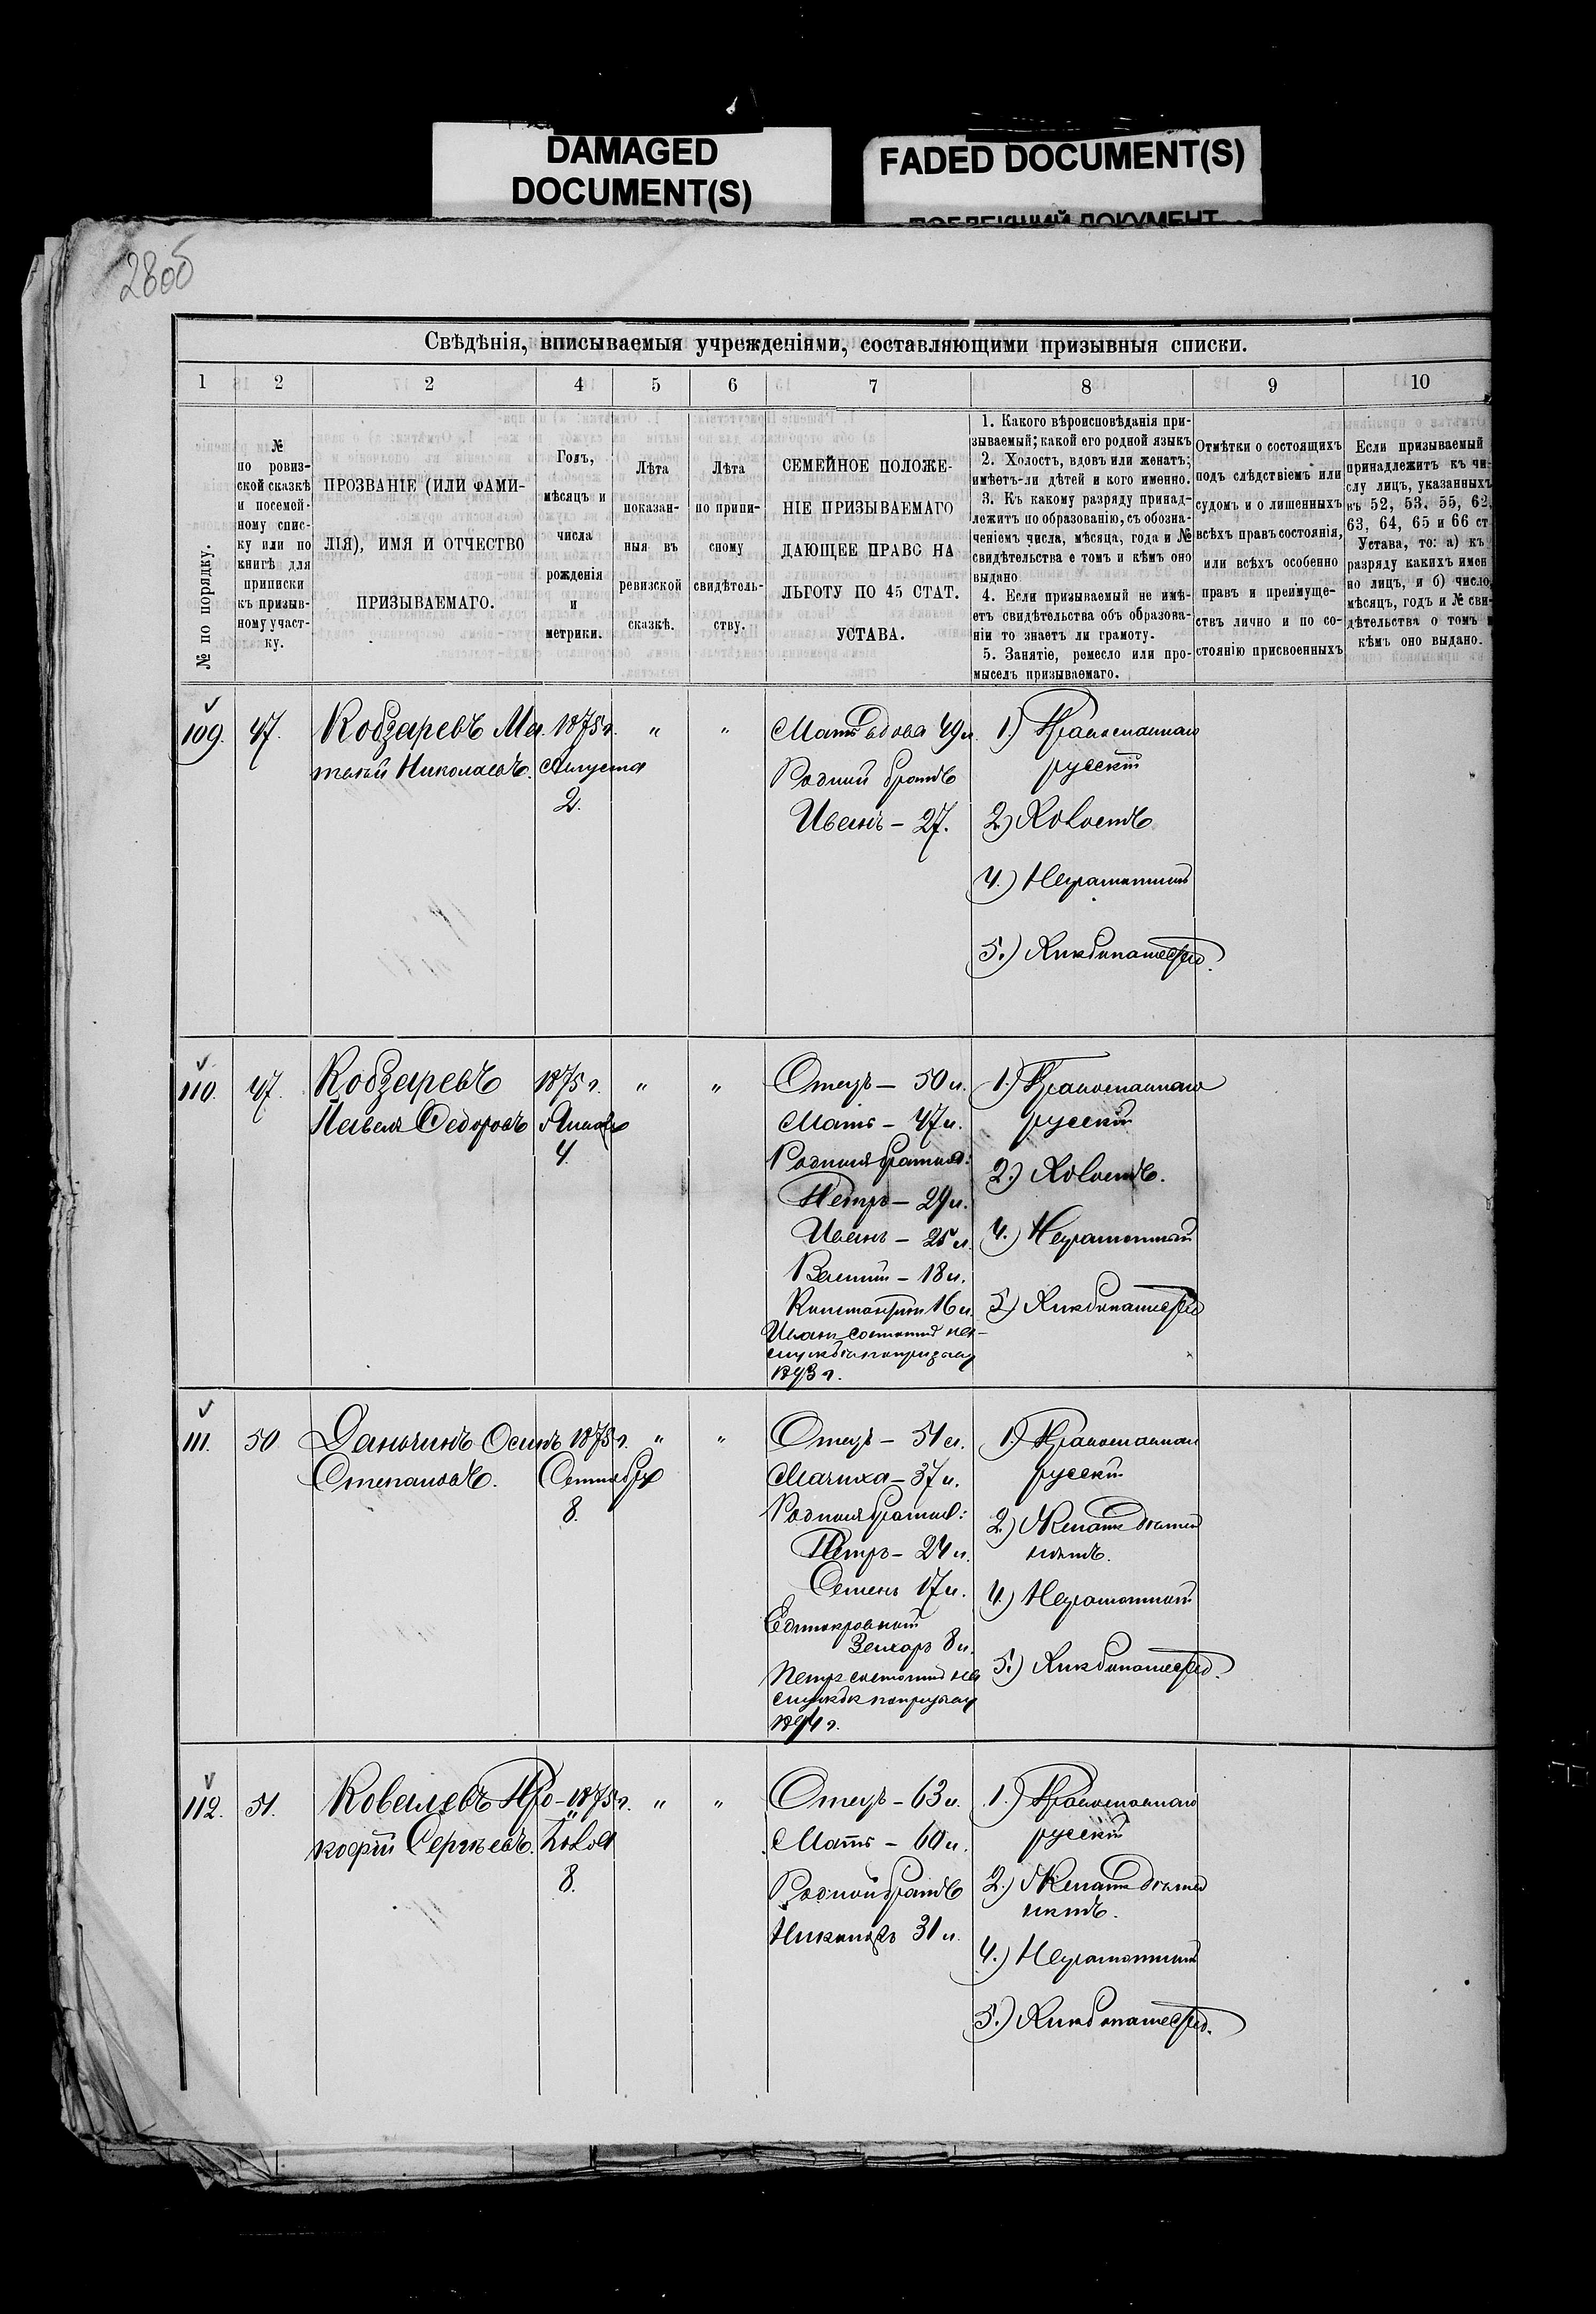 DAMAGED
DOCUMENT(S)
FADED DOCUMENT(S)
280б
Свѣдѣнія, вписываемыя учрежденіями, составляющими призывныя списки.
1 2 2 4 5 6 7 8 9 10
№ по порядку.
№
по ровиз-
ской сказкѣ
и посемей-
ному спис-
ку или по
книгѣ для
приписки
къ призыв-
ному участ-
ку.
ПРОЗВАНІЕ (ИЛИ ФАМИ-
ЛІЯ), ИМЯ И ОТЧЕСТВО
ПРИЗЫВАЕМАГО.
Годъ,
мѣсяцъ и
числа
рожденія
и
метрики.
Лѣта
показан-
ныя въ
ревизской
сказкѣ.
Лѣта
по припи-
сному
свидѣтель-
ству.
СЕМЕЙНОЕ ПОЛОЖЕ-
НІЕ ПРИЗЫВАЕМАГО
ДАЮЩЕЕ ПРАВС НА
ЛЬГОТУ ПО 45 СТАТ.
УСТАВА.
1. Какого вѣроисповѣданія при-
зываемый; какой его родной языкъ
2. Холостъ, вдовъ или женатъ;
имѣетъ-ли дѣтей и кого именно.
3. Къ какому разряду принад-
лежитъ по образованію, съ обозна-
ченіемъ числа, мѣсяца, года и №
свидѣтельства е томъ и кѣмъ оно
выдано
4. Если призываемый не имѣ-
етъ свидѣтельства объ образова-
ніи то знаетъ ли грамоту.
5. Занятіе, ремесло или про-
мыселъ призываемаго.
Отмѣтки о состоящихъ
подъ слѣдствіемъ или
судомъ и о лишенныхъ
всѣхъ правъ состоянія,
или всѣхъ особенно
правъ и преимуще-
ствъ лично и по со-
стоянію присвоенныхъ
Если призываемый
принадлежитъ къ чи-
слу лицъ, указанныхъ
въ 52, 53, 55, 62,
63, 64, 65 и 66 ст
Устава, то: а) къ
разряду какихъ имен
но лицъ, и б) число,
мѣсяцъ, годъ и № сви-
дѣтельства о томъ и
кѣмъ оно выдано.
109. 47.
Кобзаревъ Ма
твѣй Николаевъ.
1875 г.
Августа
2.
" "
Мать вдова 49 л.
Родной братъ
Иванъ – 27.
1.) Православнаго
русскій
2) Холостъ
4.) Неграмотный
5.) Хлѣбопашество.
110. 47.
Кобзаревъ
Павелъ Ѳедоровъ
1875 г.
Января
4
" "
Отецъ – 50 л.
Мать – 47 л.
Родныя братья:
Петръ – 29 л.
Иванъ – 25 л.
Василій – 18 л.
Константинъ 16 л.
Иванъ состоитъ на
службѣ по призыву
1893 г.
1.) Православнаго
русскій
2.) Холостъ.
4.) Неграмотный
5.) Хлѣбопашество
111. 50
Даньчинъ Осипъ
Степановъ.
1875 г.
Сентября
8.
" "
Отецъ – 51 л.
Мачиха – 37 л.
Родныя братья:
Петръ – 24 л.
Семенъ 17 л.
Единокровный
Захаръ 8 л.
Петръ состоитъ на
службѣ по призыву
1894 г.
1.) Православнаго
русскій
2.) Женатъ дѣтей
нѣтъ.
4.) Неграмотный
5.) Хлѣбопашество.
112. 51.
Ковалевъ Про-
кофій Сергѣевъ.
1875 г.
Іюля
8.
" "
Отецъ – 63 л.
Мать – 60 л.
Родной братъ
Никаноръ 31 л.
1.) Православнаго
русскій
2.) Женатъ дѣтей
нѣтъ.
4.) Неграмотный
5.) Хлѣбопашество.